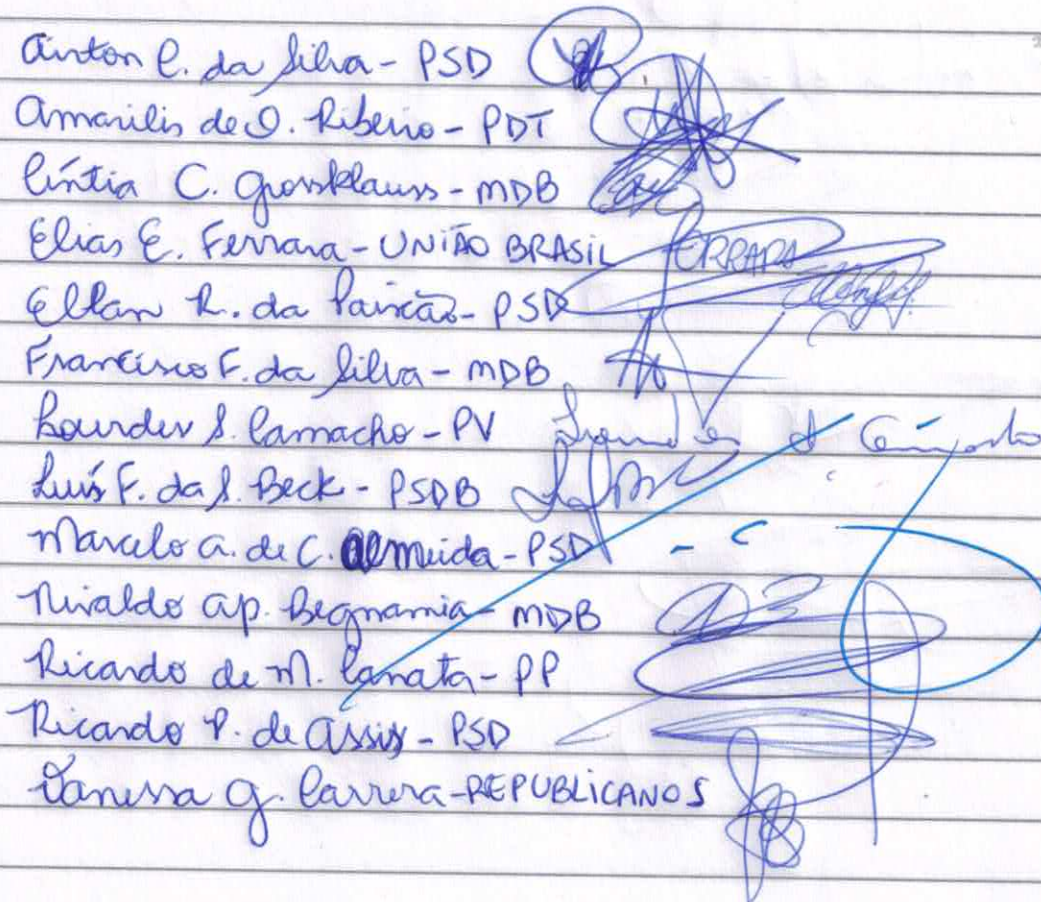 Airton C. da Silva - PSD
Amarilis de O. Ribeiro - PDT
Cíntia C. Grossklauss - MDB
Elias E. Ferrara - UNIÃO BRASIL FERRARA
Ellan R. da Paixão - PSD
Francisco F. da Silva - MDB
Lourdes S. Camacho - PV
Luís F. da S. Beck - PSDB
Marcelo A. de C. Almeida - PSD
Nivaldo Ap. Begnamia - MDB
Ricardo de M. Canata - PP
Ricardo P. de Assis - PSD
Vanessa G. Carrera - REPUBLICANOS